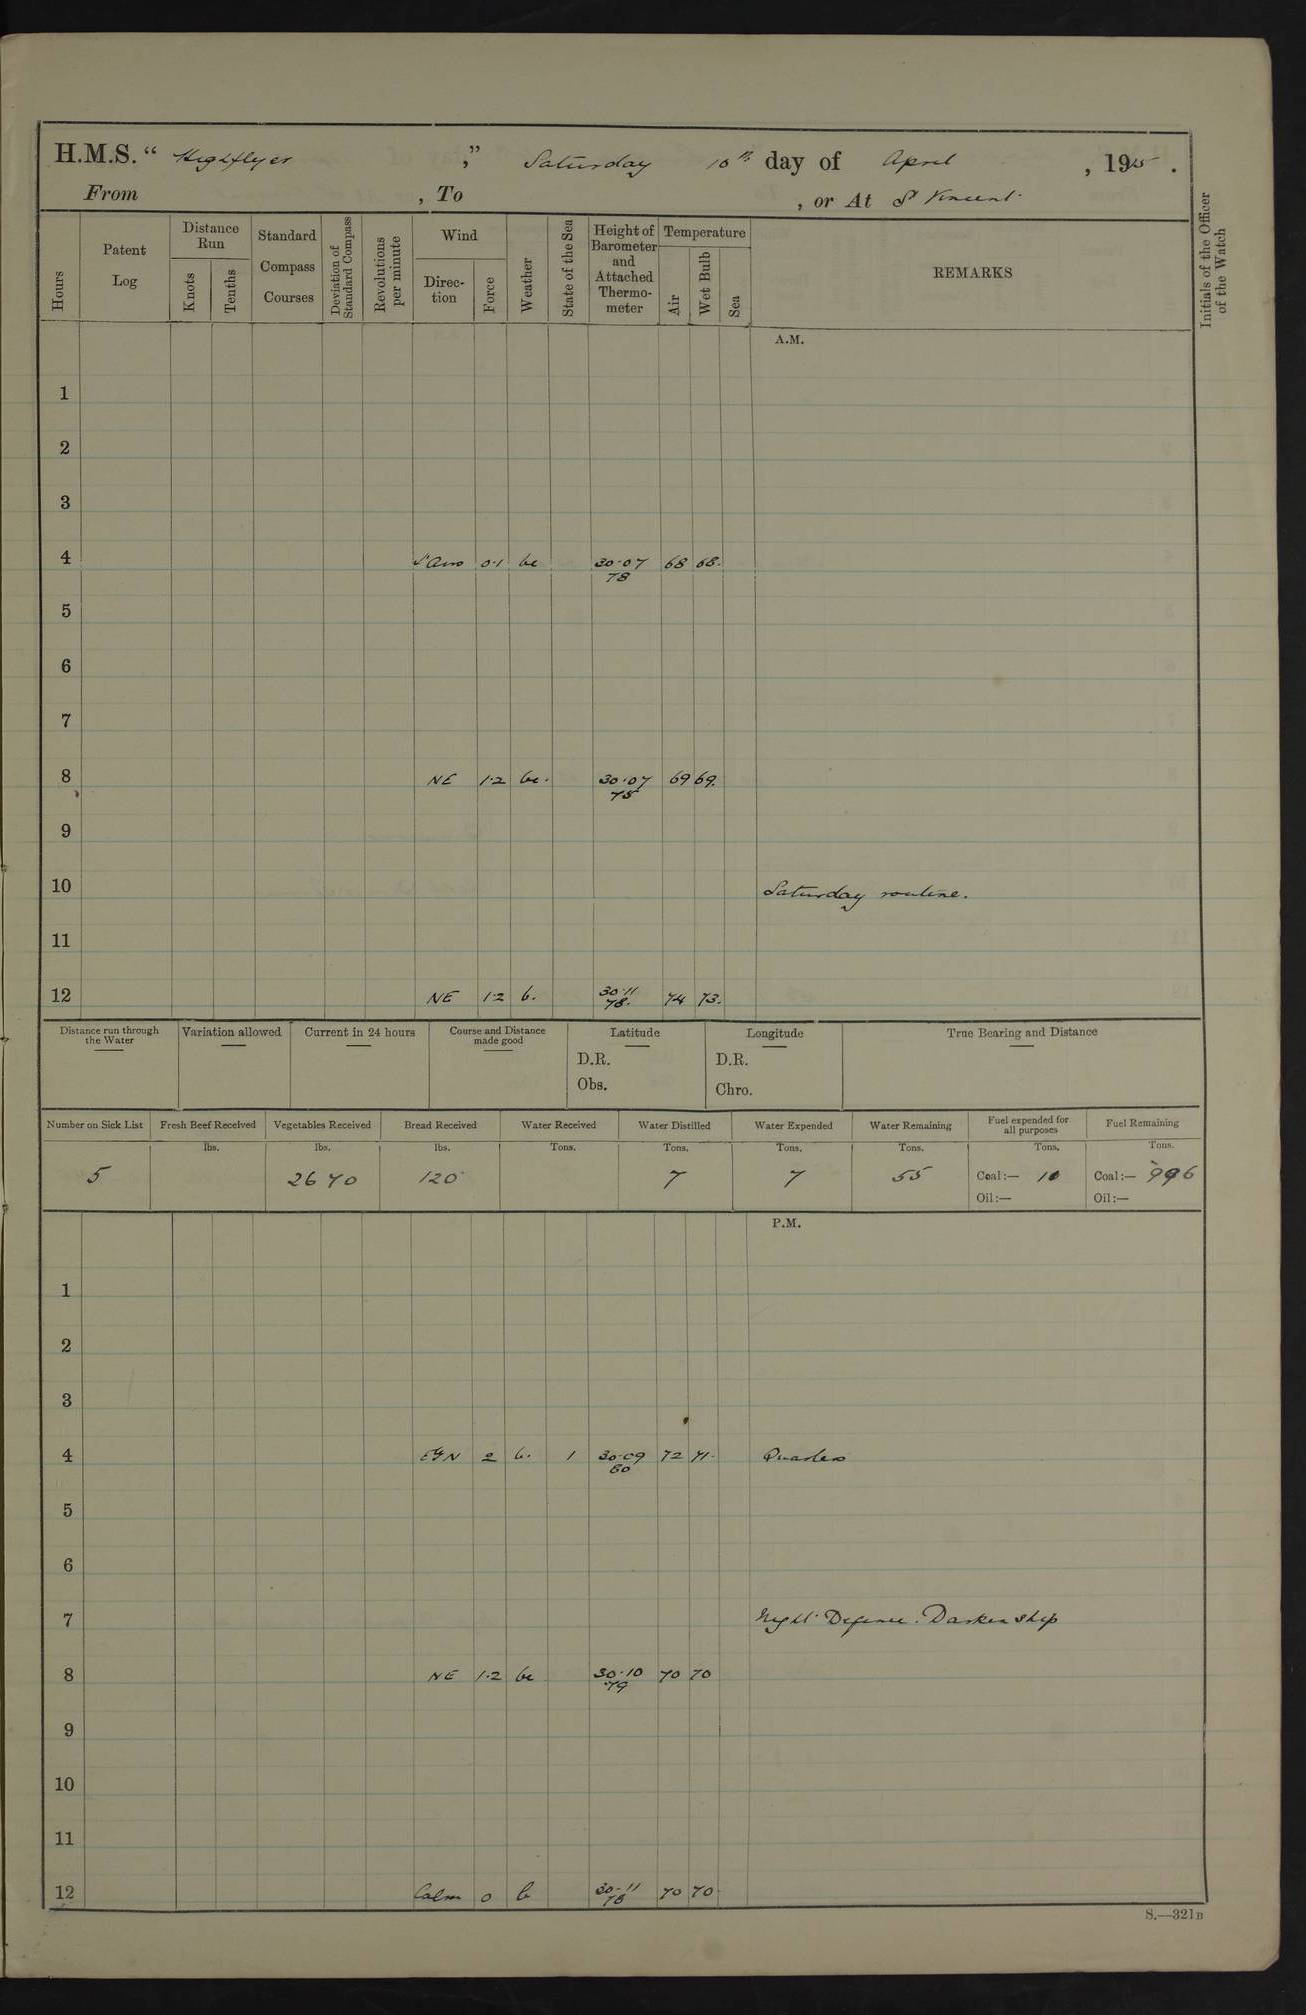 H.M.S. “ Highflyer ,” Saturday 10th day of April , 1915 .
From , To , or At St Vincent
Hours
Patent Log
Distance Run
Knots
Tenths
Standard Compass Courses
Deviation of Standard Compass
Revolutions per minute
Wind
Direction
Force
Weather
State of the Sea
Height of Barometer and Attached Thermometer
Temperature
Air
Wet Bulb
Sea
REMARKS
Initials of the Officer of the Watch
A.M.
1
2
3
4 0·1 bc 30·07 68 68.
78
5
6
7
8 NE 1·2 bc. 30·07 69 69.
75
9
10 Saturday routine.
11
12 NE 1·2 b. 30·11 74 73.
78.
Distance run through the Water
Variation allowed
Current in 24 hours
Course and Distance made good
Latitude
D.R.
Obs.
Longitude
D.R.
Chro.
True Bearing and Distance
Number on Sick List
5
Fresh Beef Received
lbs.
Vegetables Received
lbs.
2670
Bread Received
lbs.
120
Water Received
Tons.
Water Distilled
Tons.
7
Water Expended
Tons.
7
Water Remaining
Tons.
55
Fuel expended for all purposes
Tons.
Coal:— 10
Oil:—
Fuel Remaining
Tons.
Coal:— 996
Oil:—
P.M.
1
2
3
4 EbyN 2 b. 1 30·09 72 71. Quarters
80
5
6
7 Night Defence. Darken ship
8 NE 1·2 bc 30·10 70 70
79
9
10
11
12 Calm 0 b 30·11 70 70.
78
S.—321B